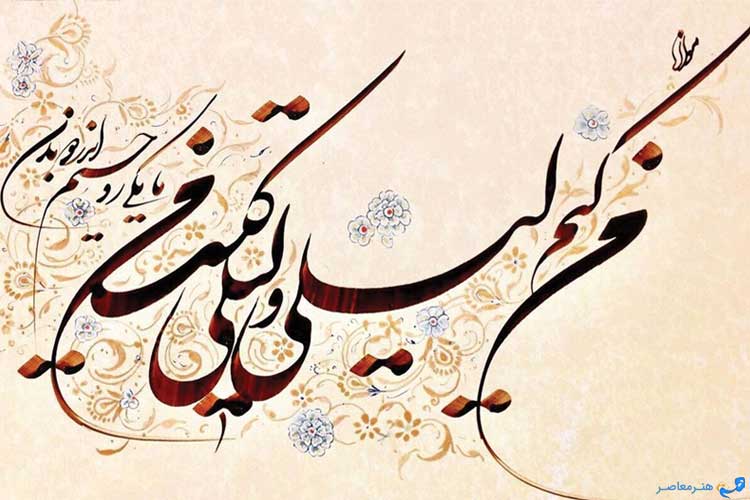 مولانا
من کیم لیلی و لیلی کیست من
ما یکی روحیم اندر دو بدن
هنر معاصر